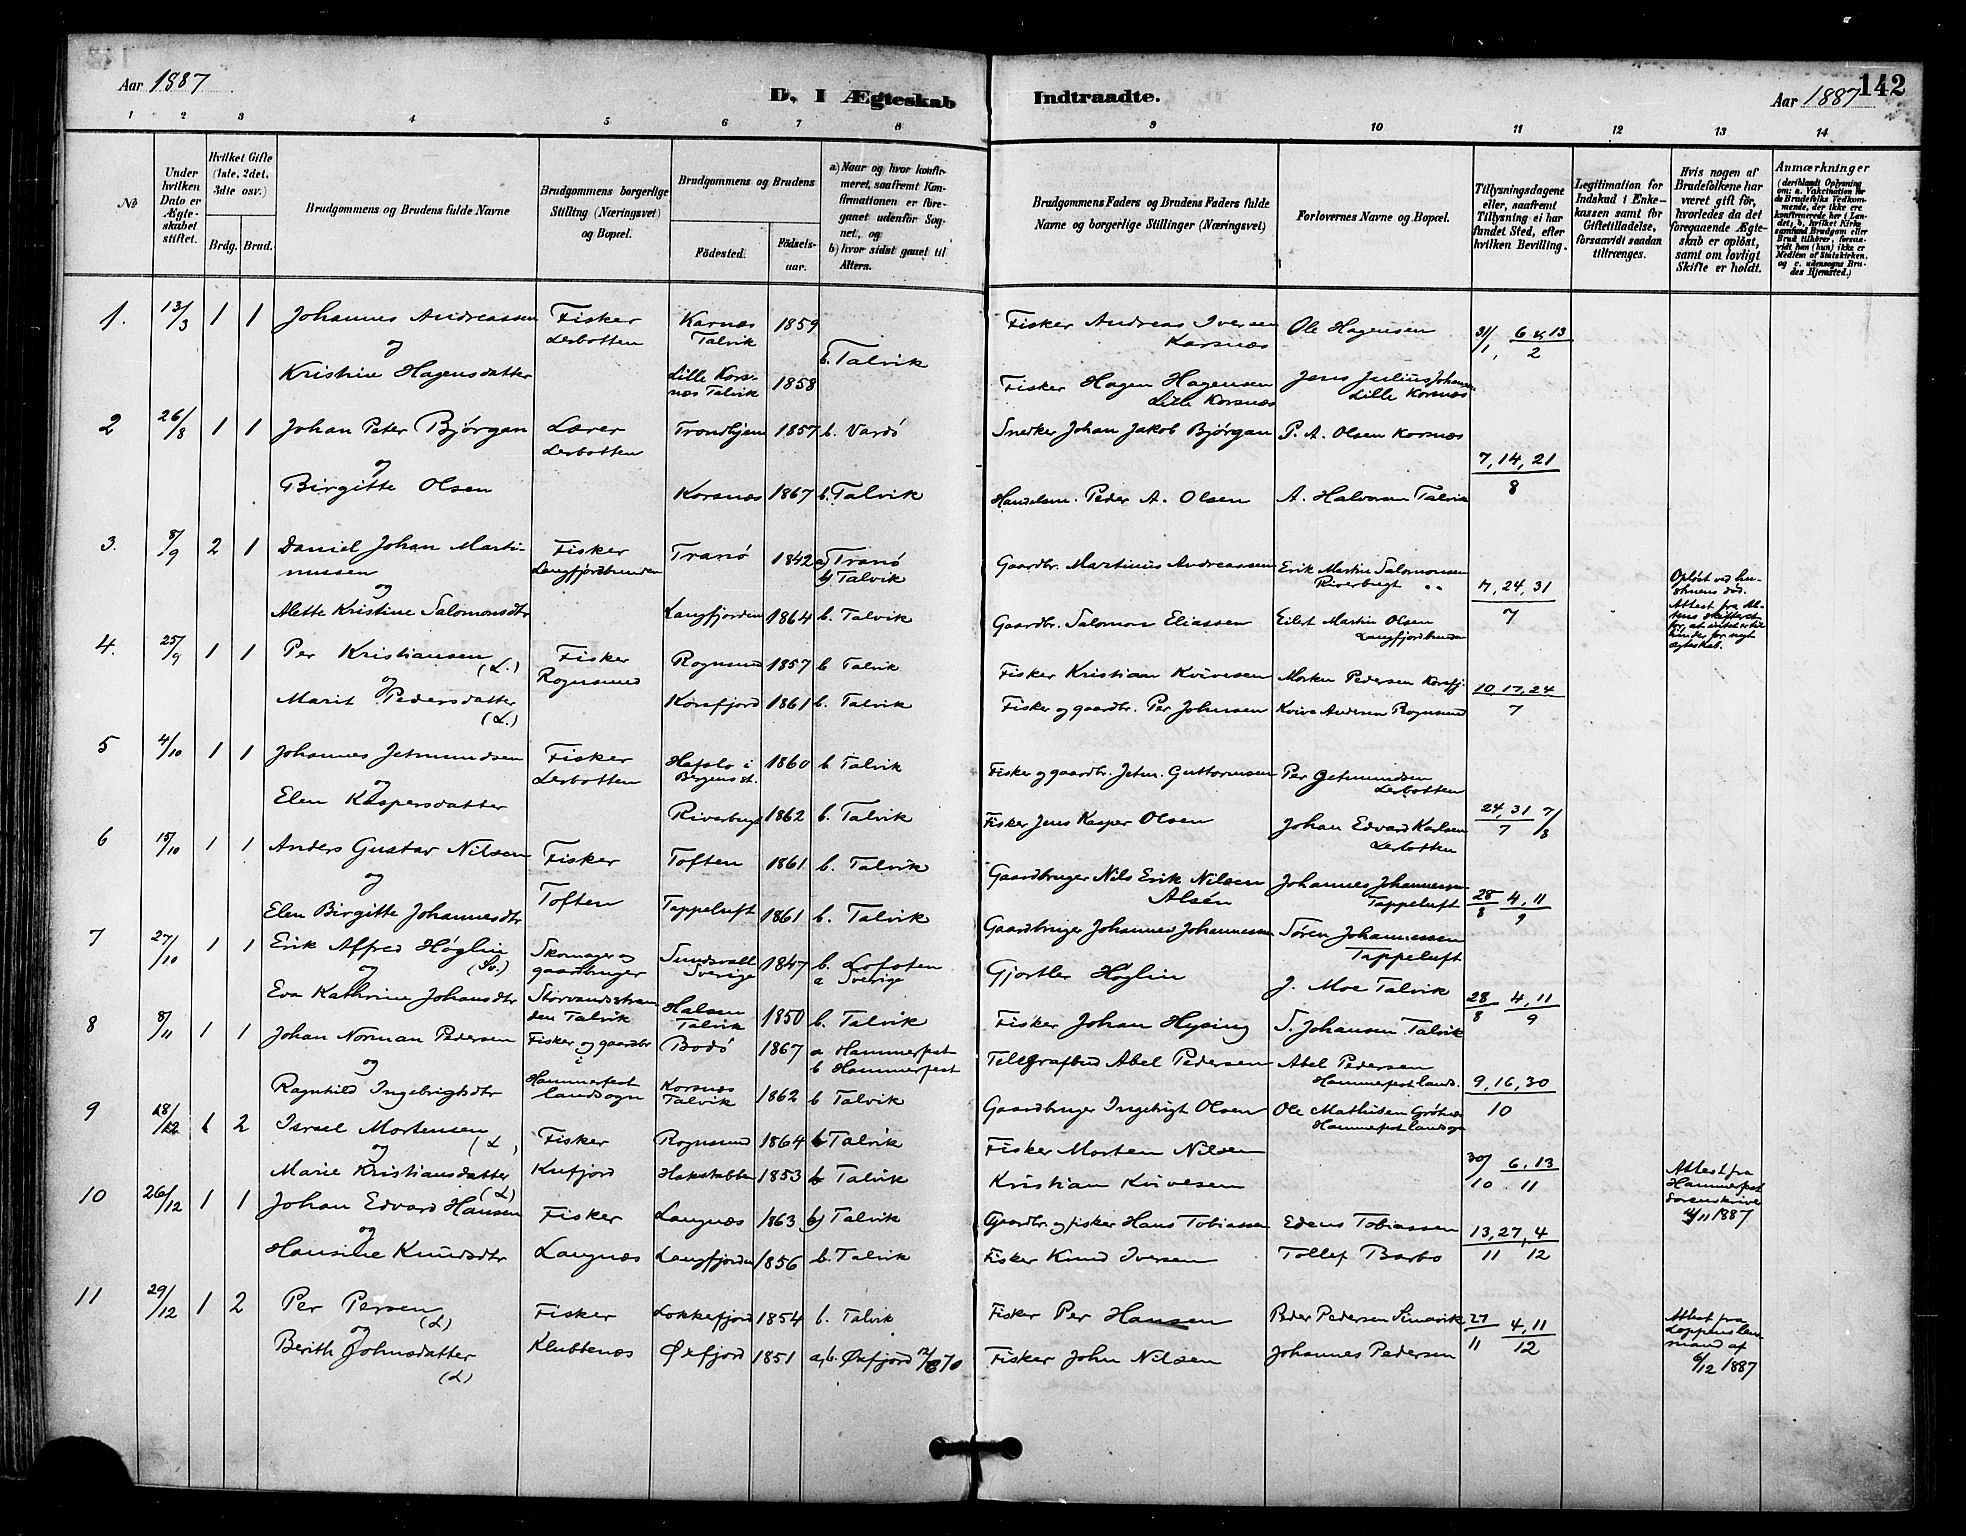 142
Aar 1887
D. I Ægteskab Indtraadte.
Aar 1887
1 2 3 4 5 6 7 8 9 10 11 12 13 14
No
Under hvilken Dato er Ægteskabet stiftet.
Hvilket Gifte (1ste, 2det, 3die osv.)
Brdg. Brud.
Brudgommens og Brudens fulde Navne
Brudgommens borgerlige Stilling (Næringsvei) og Bopæl.
Brudgommens og Brudens
Födested. Födsels-aar.
a) Naar og hvor konfirmeret, saafremt Konfirmationen er foregaaet udenfor Sognet, og
b) hvor sidst gaaet til Alters.
Brudgommens Faders og Brudens Faders fulde Navne og borgerlige Stillinger (Næringsvei)
Forlovernes Navne og Bopæl.
Tillysningsdagene eller, saafremt Tillysning ei har fundet Sted, efter hvilken Bevilling.
Legitimation for Indskud i Enkekassen samt for Giftetilladelse, forsaavidt saadan tiltrænges.
Hvis nogen af Brudefolkene har været gift för, hvorledes da det foregaaende Ægteskab er oplöst, samt om lovligt Skifte er holdt.
Anmærkninger
(deriblandt Oplysning om: a. Vakcination for de Brudefolks Vedkommende, der ikke ere konfirmerede her i Landet; b, hvilket Kirkesamfund Brudgom eller Brud tilhörer, forsaavidt han (hun) ikke er Medlem af Statskirken, og c. udensogns Brudes Hjemsted.)
1. 13/3 1 1 Johannes Andreassen Fisker Lerbotten Karnæs Talvik 1859 Fisker Andreas Iversen Korsnæs Ole Hagensen 31/1, 6 & 13/2
og
Kristine Hagensdatter Lille Korsnæs Talvik 1858 b. Talvik Fisker Hagen Hagensen Lille Korsnæs Jens Julius Johansen Lille Korsnæs
2 26/8 1 1 Johan Peter Bjørgan Lærer Lerbotten Trondhjem 1857 b. Vardö Snedker Johan Jakob Bjørgan P. A. Olsen Korsnæs 7, 14, 21/8
og
Birgitte Olsen Korsnæs 1867 b. Talvik Handelsm. Peder A. Olsen A. Halvorsen Talvik
3. 8/9 2 1 Daniel Johan Martinussen Fisker Langfjordbunden Tranö 1842 a) Tranö b) Talvik Gaardbr. Martinus Andreassen Erik Martin Salomonsen Riverbugt 17, 24, 31/7 Opløst ved hustruens död.
og
Alette Kristine Salomonsdtr Langfjorden 1864 b. Talvik Gaardbr. Salomon Eliassen Eilert Martin Olsen Langfjordbunden
4. 25/9 1 1 Per Kristiansen (L.) Fisker Rognsund Rognsund 1857 b Talvik Fisker Kristian Kvivesen Morten Pedersen Korsfj. 10, 17, 24/7
og
Marit Pedersdatter (L.) Korsfjord 1861 b. Talvik Fisker og gaardbr. Per Johnsen Kvive Andersen Rognsund
5 4/10 1 1 Johannes Jetmundsen Fisker Lerbotten Hafslo i Bergens st. 1860 b Talvik Fisker og gaardbr. Jetm. Guttormsen Per Jetmundsen Lerbotten 24, 31/7 7/8
og
Elen Kaspersdatter Riverbugt 1862 b. Talvik Fisker Jens Kasper Olsen Johan Edvard Karlsen Lerbotten
6 15/10 1 1 Anders Gustav Nilsen Fisker Toften Toften 1861 b. Talvik Gaardbruger Nils Erik Nilsen Alsén Johannes Johannessen Tappeluft 28/8 4, 11/9
og
Elen Birgitte Johannesdtr Tappeluft 1861 b. Talvik Gaardbruger Johannes Johannessen Søren Johannessen Tappeluft
7 27/10 1 1 Erik Alfred Höglin (Sv.) Skomager og gaardbruger Sundsvall Sverige 1847 b. Lofoten a Sverige Gjortler Höglin J. Moe Talvik 28/8 4, 11/9
og
Eva Kathrine Johansdtr Storvandsstranden Talvik Halsen Talvik 1850 b. Talvik Fisker Johan Hysing S. Johansen Talvik
8 8/11 1 1 Johan Norman Pedersen Fisker og gaardbr i Bodö 1867 a Hammerfest b Hammerfest Telegrafbud Abel Pedersen Abel Pedersen Hammerfest lands. 9, 16, 30/10
og
Ragnhild Ingebrigtsdtr Hammerfest landsogn Korsnæs Talvik 1862 b Talvik Gaardbruger Ingebrigt Olsen Ole Mathisen Hammerfest landsogn
9 18/12 1 2 Israel Mortensen (L) Fisker Rognsund 1864 b Talvik Fisker Morten Nilsen 30/10 6, 13/11 Attest fra Hammerfest Sorenskriver 4/11 1887
og
Marie Kristiansdatter (L) Kufjord Hakstabben 1853 b Talvik Kristian Kvivesen
10 26/12 1 1 Johan Edvard Hansen Fisker Langnæs 1863 b) Talvik Gaardbr. og fisker Hans Tobiassen Edens Tobiassen 13, 27, 4/11 12
og
Hansine Knudsdtr Langnæs Langfjorden 1856 b. Talvik Fisker Knud Iversen Tollef Barbo
11 29/12 1 2 Per Persen (L) Fisker Lokkefjord 1854 b. Talvik Fisker Per Hansen Peder Pedersen Simavik 27/11 4, 11/12 Attest fra Loppens lensmand af 6/12 1887
og
Berith Johnsdatter (L) Klubbenæs Öxfjord 1851 a, b. Öxfjord Fisker John Nilsen Johannes Pedersen